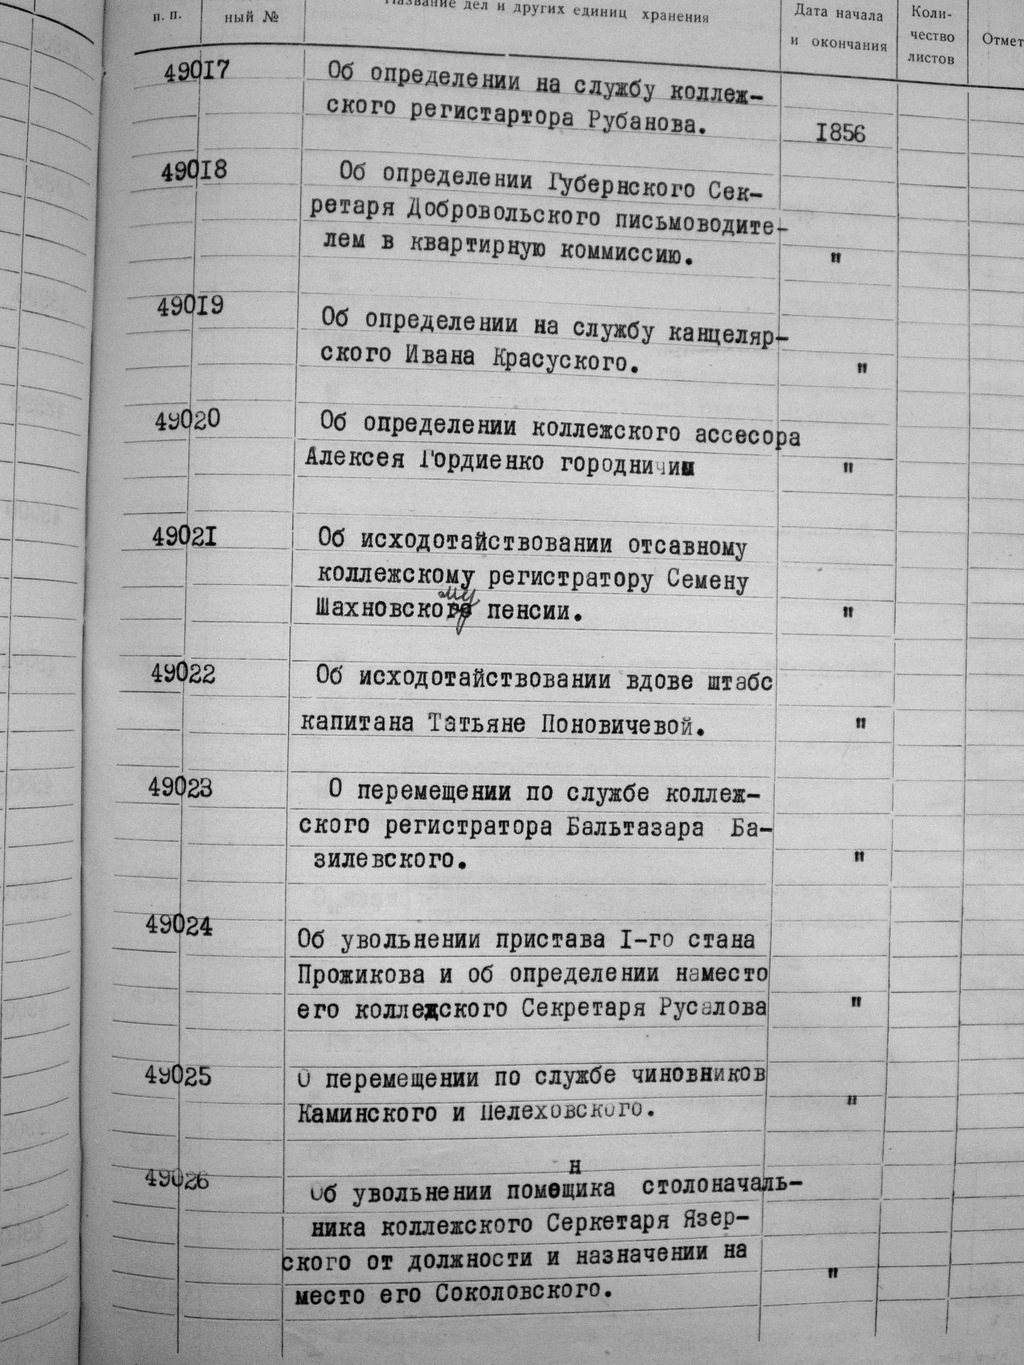 п. п.
ный №
Название дел и других единиц хранения
Дата начала
и окончания
Коли-
чество
листов
Отмет
49017
Об определении на службу коллеж-
ского регистартора Рубанова.
1856
49018
Об определении Губернского Сек-
ретаря Добровольского письмоводите-
лем в квартирную коммиссию.
"
49019
Об определении на службу канцеляр-
ского Ивана Красуского.
"
49020
Об определении коллежского ассесора
Алексея Гордиенко городничим
"
49021
Об исходотайствовании отсавному
коллежскому регистратору Семену
Шахновскому пенсии.
"
49022
Об исходотайствовании вдове штабс
капитана Татьяне Поновичевой.
"
49023
О перемещении по службе коллеж-
ского регистратора Бальтазара Ба-
зилевского.
"
49024
Об увольнении пристава I-го стана
Прожикова и об определении наместо
его колледского Секретаря Русалова
"
49025
О перемещении по службе чиновников
Каминского и Пелеховского.
"
49026
н
Об увольнении помещика столоначаль-
ника коллежского Серкетаря Язер-
ского от должности и назначении на
место его Соколовского.
"